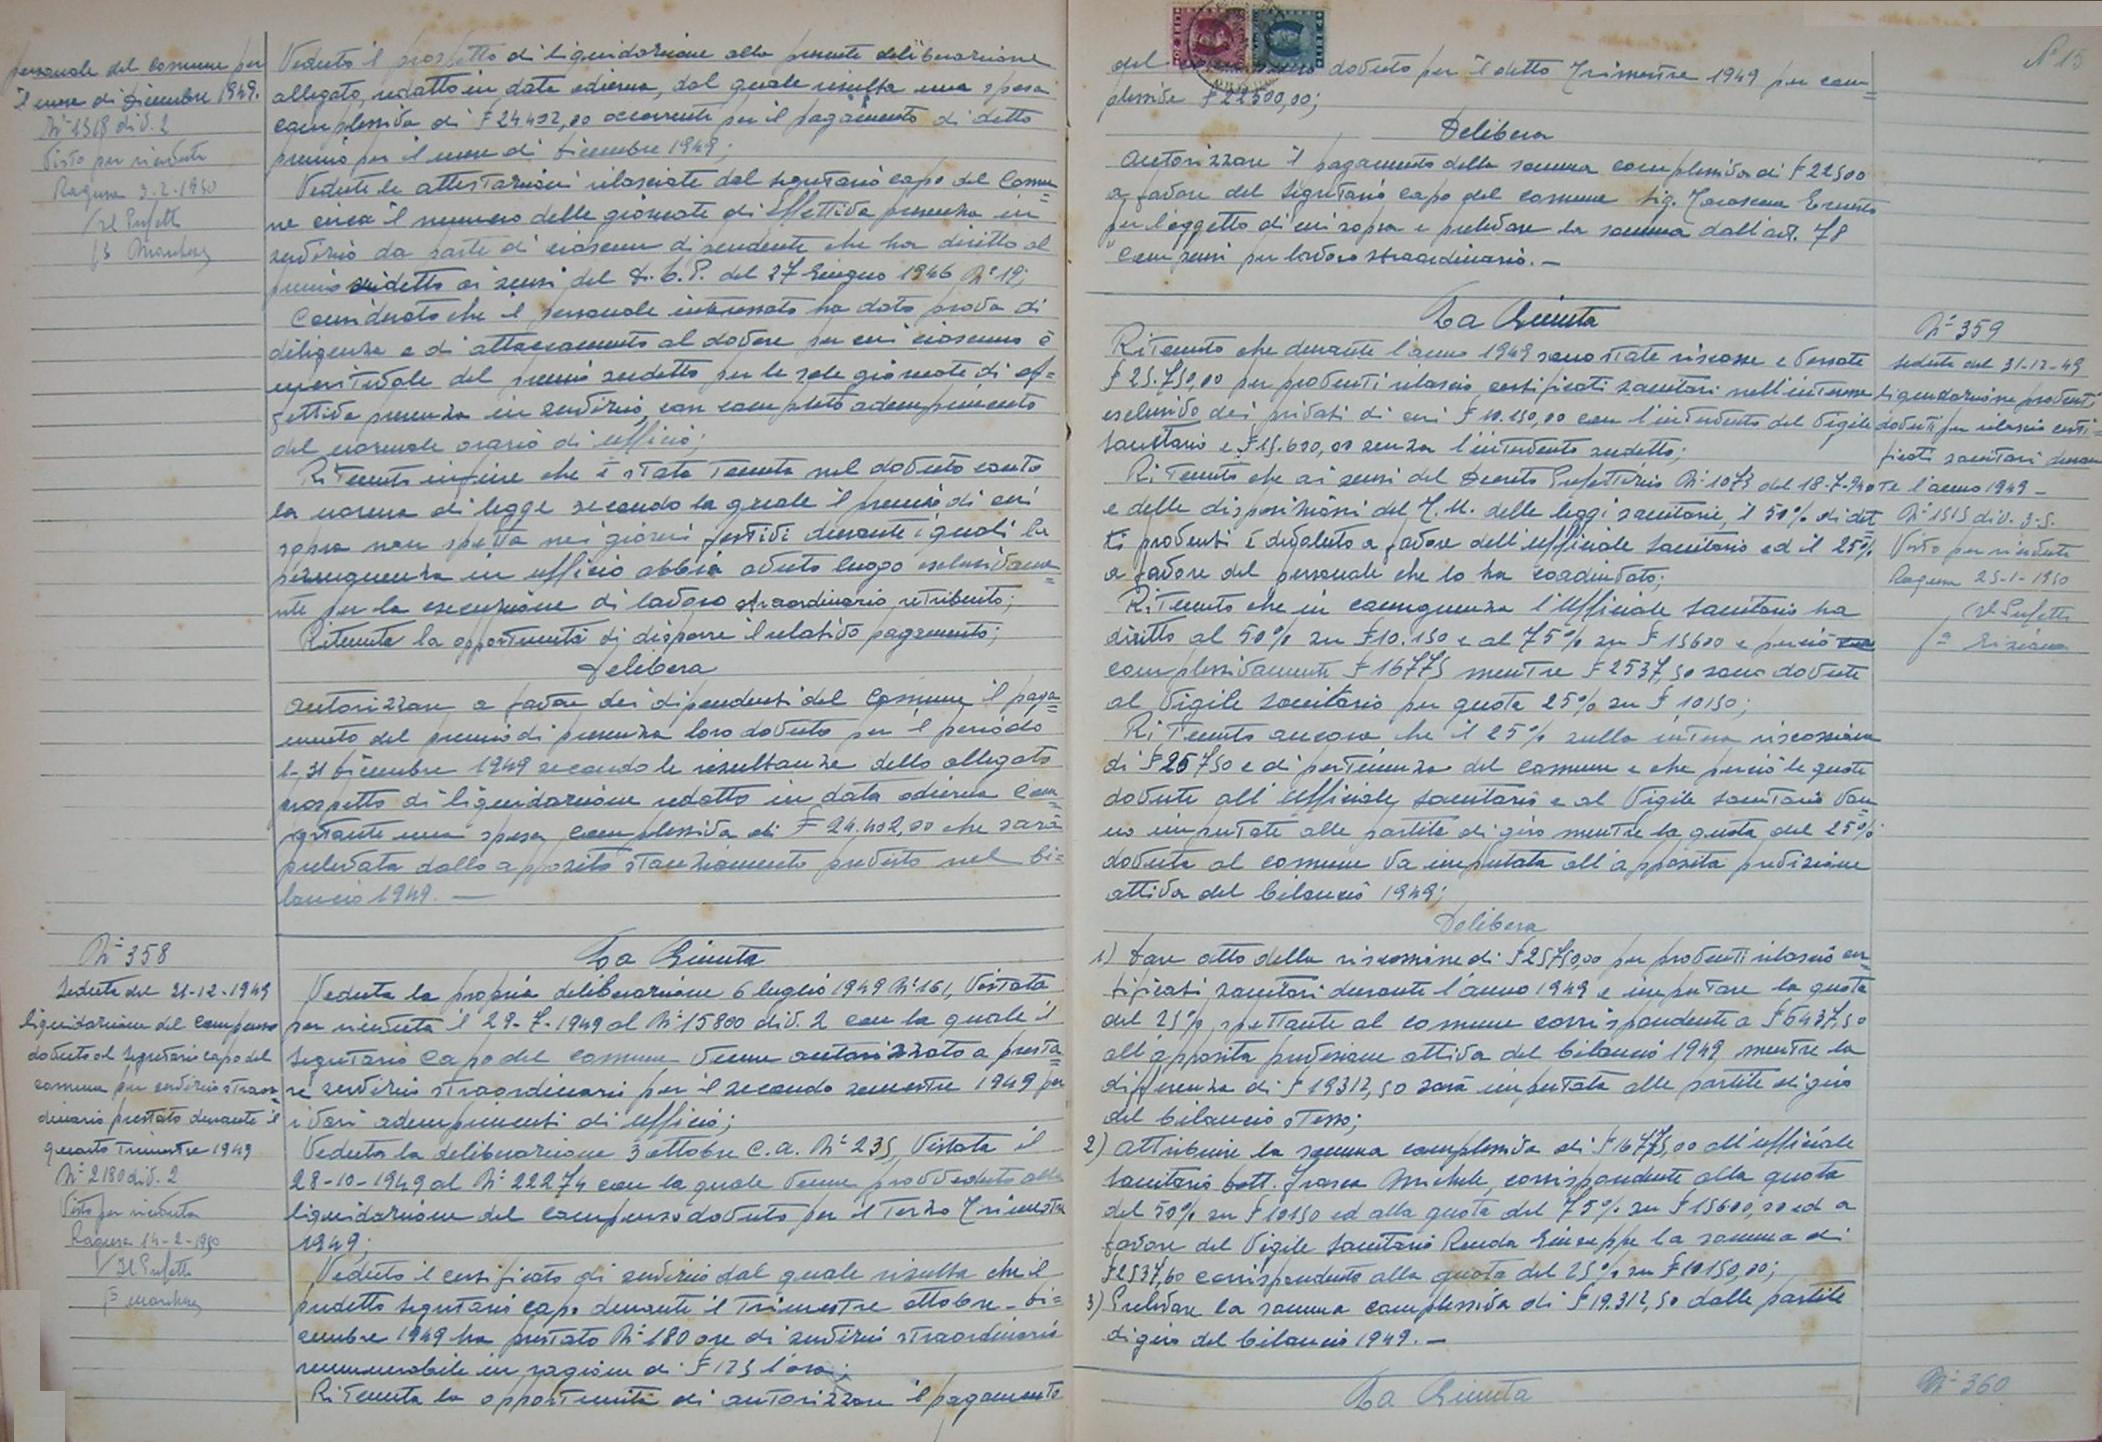 personale del comune per
il mese di Dicembre 1949.
N° 1318 div. 2
Visto per ricevuta
Ragusa 3-2-1950
Il Prefetto
Veduto il prospetto di liquidazione alla presente deliberazione
allegato, redatto in data odierna, dal quale risulta una spesa
complessiva di £ 24402,00 occorrente per il pagamento di detto
premio per il mese di Dicembre 1949;
Vedute le attestazioni rilasciate dal Segretario capo del Comu=
ne circa il numero delle giornate di effettiva presenza in
servizio da parte di ciascun dipendente che ha diritto al
premio sudetto ai sensi del D.C.P. del 27 Giugno 1946 N° 19;
Considerato che il personale interessato ha dato prova di
diligenza e di attaccamento al dovere per cui ciascuno è
meritevole del premio sudetto per le sole giornate di ef=
fettiva presenza in servizio, con completo adempimento
del normale orario di ufficio;
Ritenuto infine che è stata tenuta nel dovuto conto
la norma di legge secondo la quale il premio di cui
sopra non spetta nei giorni festivi durante i quali la
permanenza in ufficio abbia avuto luogo esclusivame=
nte per la esecuzione di lavoro straordinario retribuito;
Ritenuta la opportunità di disporre il relativo pagamento;
Delibera
Autorizzare a favore dei dipendenti del Comune il paga=
mento del premio di presenza loro dovuto per il periodo
1-31 Dicembre 1949 secondo le risultanze dello allegato
prospetto di liquidazione redatto in data odierna com=
portante una spesa complessiva di £ 24.402,00 che sarà
prelevata dallo apposito stanziamento previsto nel bi=
lancio 1949. —
N° 358
Seduta del 31-12-1949
liquidazione del compenso
dovuto al Segretario capo del
comune per servizio straor=
dinario prestato durante il
quarto trimestre 1949
N° 2180 div. 2
Visto per ricevuta
Ragusa 14-2-1950
Il Prefetto
La Giunta
Veduta la propria deliberazione 6 luglio 1949 N° 161, Vistata
per ricevuta il 29-7-1949 al N° 15800 div. 2 con la quale il
Segretario Capo del comune venne autorizzato a presta=
re servizio straordinario per il secondo semestre 1949 per
i vari adempimenti di ufficio;
Veduta la deliberazione 3 ottobre c.a. N° 235, Vistata il
28-10-1949 al N° 22274 con la quale venne provveduto alla
liquidazione del compenso dovuto per il terzo Trimestre
1949;
Veduto il certificato di servizio dal quale risulta che il
predetto Segretario capo durante il Trimestre ottobre-Di=
cembre 1949 ha prestato N° 180 ore di servizio straordinario
remunerabile in ragione di £ 125 l'ora;
Ritenuta la opportunità di autorizzare il pagamento
N° 15
del dovuto per il detto Trimestre 1949 per com=
plessive £ 22500,00;
Delibera
Autorizzare il pagamento della somma complessiva di £ 22500
a favore del Segretario capo del comune Sig. Ernesto
per l'oggetto di cui sopra e prelevare la somma dall'art. 78
"Compensi per lavoro straordinario. —
La Giunta
Ritenuto che durante l'anno 1949 sono state riscosse e versate
£ 25.750,00 per proventi rilascio certificati sanitari nell'interesse
esclusivo dei privati di cui £ 10.150,00 con l'intervento del Vigile
Sanitario e £ 15.600,00 senza l'intervento sudetto;
Ritenuto che ai sensi del Decreto Prefettizio N° 1073 del 18-7-940
e delle disposizioni del T.U. delle leggi sanitarie, il 50% di det=
ti proventi è devoluto a favore dell'ufficiale Sanitario ed il 25%
a favore del personale che lo ha coadiuvato;
Ritenuto che in conseguenza l'Ufficiale Sanitario ha
diritto al 50% su £ 10.150 e al 75% su £ 15600 e perciò
complessivamente £ 16775 mentre £ 2537,50 sono dovute
al Vigile Sanitario per quota 25% su £ 10150;
Ritenuto ancora che il 25% sulla intera riscossione
di £ 25750 e di pertinenza del comune e che perciò le quote
dovute all'Ufficiale Sanitario e al Vigile Sanitario van=
no imputate alle partite di giro mentre la quota del 25%
dovuta al comune va imputata all'apposita previsione
attiva del bilancio 1949;
Delibera
1) Dare atto della riscossione di £ 25750,00 per proventi rilascio cer=
tificati sanitari durante l'anno 1949 e imputare la quota
del 25% spettante al comune corrispondente a £ 6437,50
all'apposita previsione attiva del bilancio 1949 mentre la
differenza di £ 19312,50 sarà imputata alle partite di giro
del bilancio stesso;
2) Attribuire la somma complessiva di £ 16775,00 all'ufficiale
Sanitario Dott. Michele, corrispondente alla quota
del 50% su £ 10150 ed alla quota del 75% su £ 15600,00 ed a
favore del Vigile Sanitario Renda Giuseppe la somma di
£ 2537,60 corrispondente alla quota del 25% su £ 10150,00;
3) Prelevare la somma complessiva di £ 19.312,50 dalle partite
di giro del bilancio 1949. —
La Giunta
N° 359
Seduta del 31-12-49
liquidazione proventi
dovuti per rilascio certi=
ficati sanitari duran
te l'anno 1949 -
N° 1515 div. 3-S.
Visto per ricevuta
Ragusa 25-1-1950
Il Prefetto
N° 360